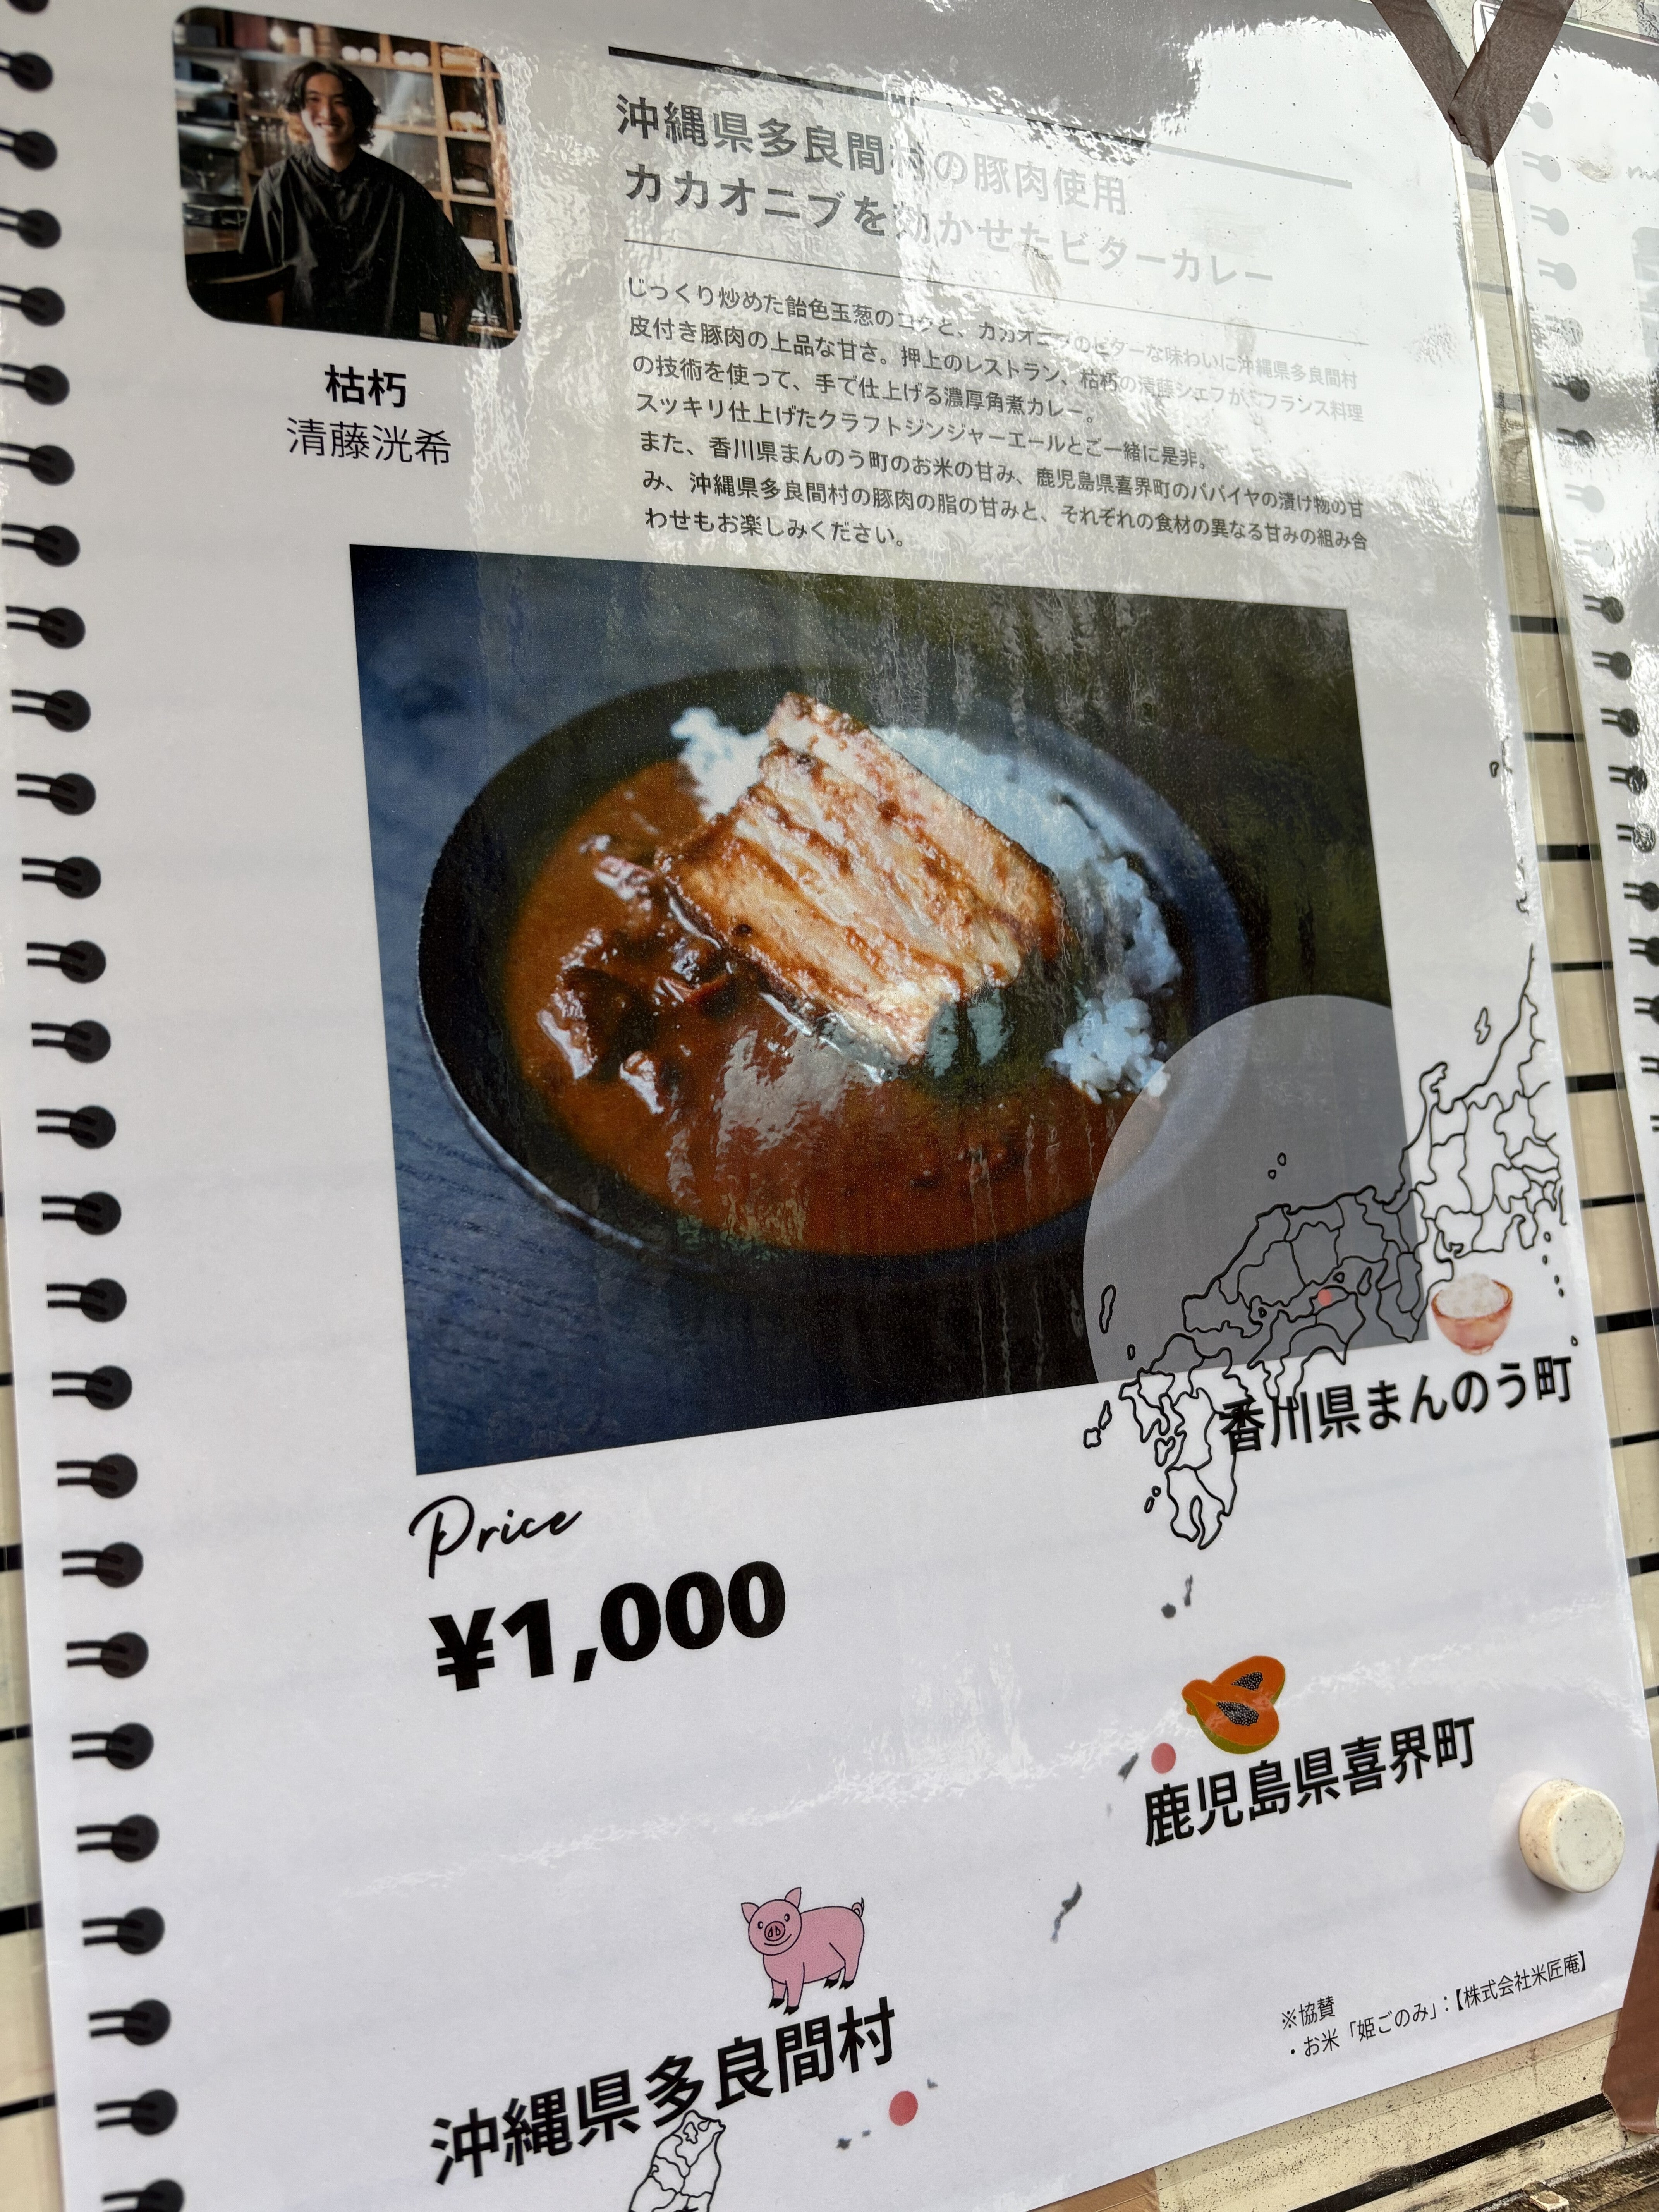 沖縄県多良間村の豚肉使用
カカオニブを効かせたビターカレー
じっくり炒めた飴色玉葱のコクと、カカオニブのビターな味わいに沖縄県多良間村
皮付き豚肉の上品な甘さ。押上のレストラン、枯朽の清藤シェフが、フランス料理
の技術を使って、手で仕上げる濃厚角煮カレー。
スッキリ仕上げたクラフトジンジャーエールとご一緒に是非。
また、香川県まんのう町のお米の甘み、鹿児島県喜界町のパパイヤの漬け物の甘
み、沖縄県多良間村の豚肉の脂の甘みと、それぞれの食材の異なる甘みの組み合
わせもお楽しみください。
枯朽
清藤洸希
香川県まんのう町
Price
¥1,000
鹿児島県喜界町
沖縄県多良間村
※協賛
・お米「姫ごのみ」：【株式会社米匠庵】